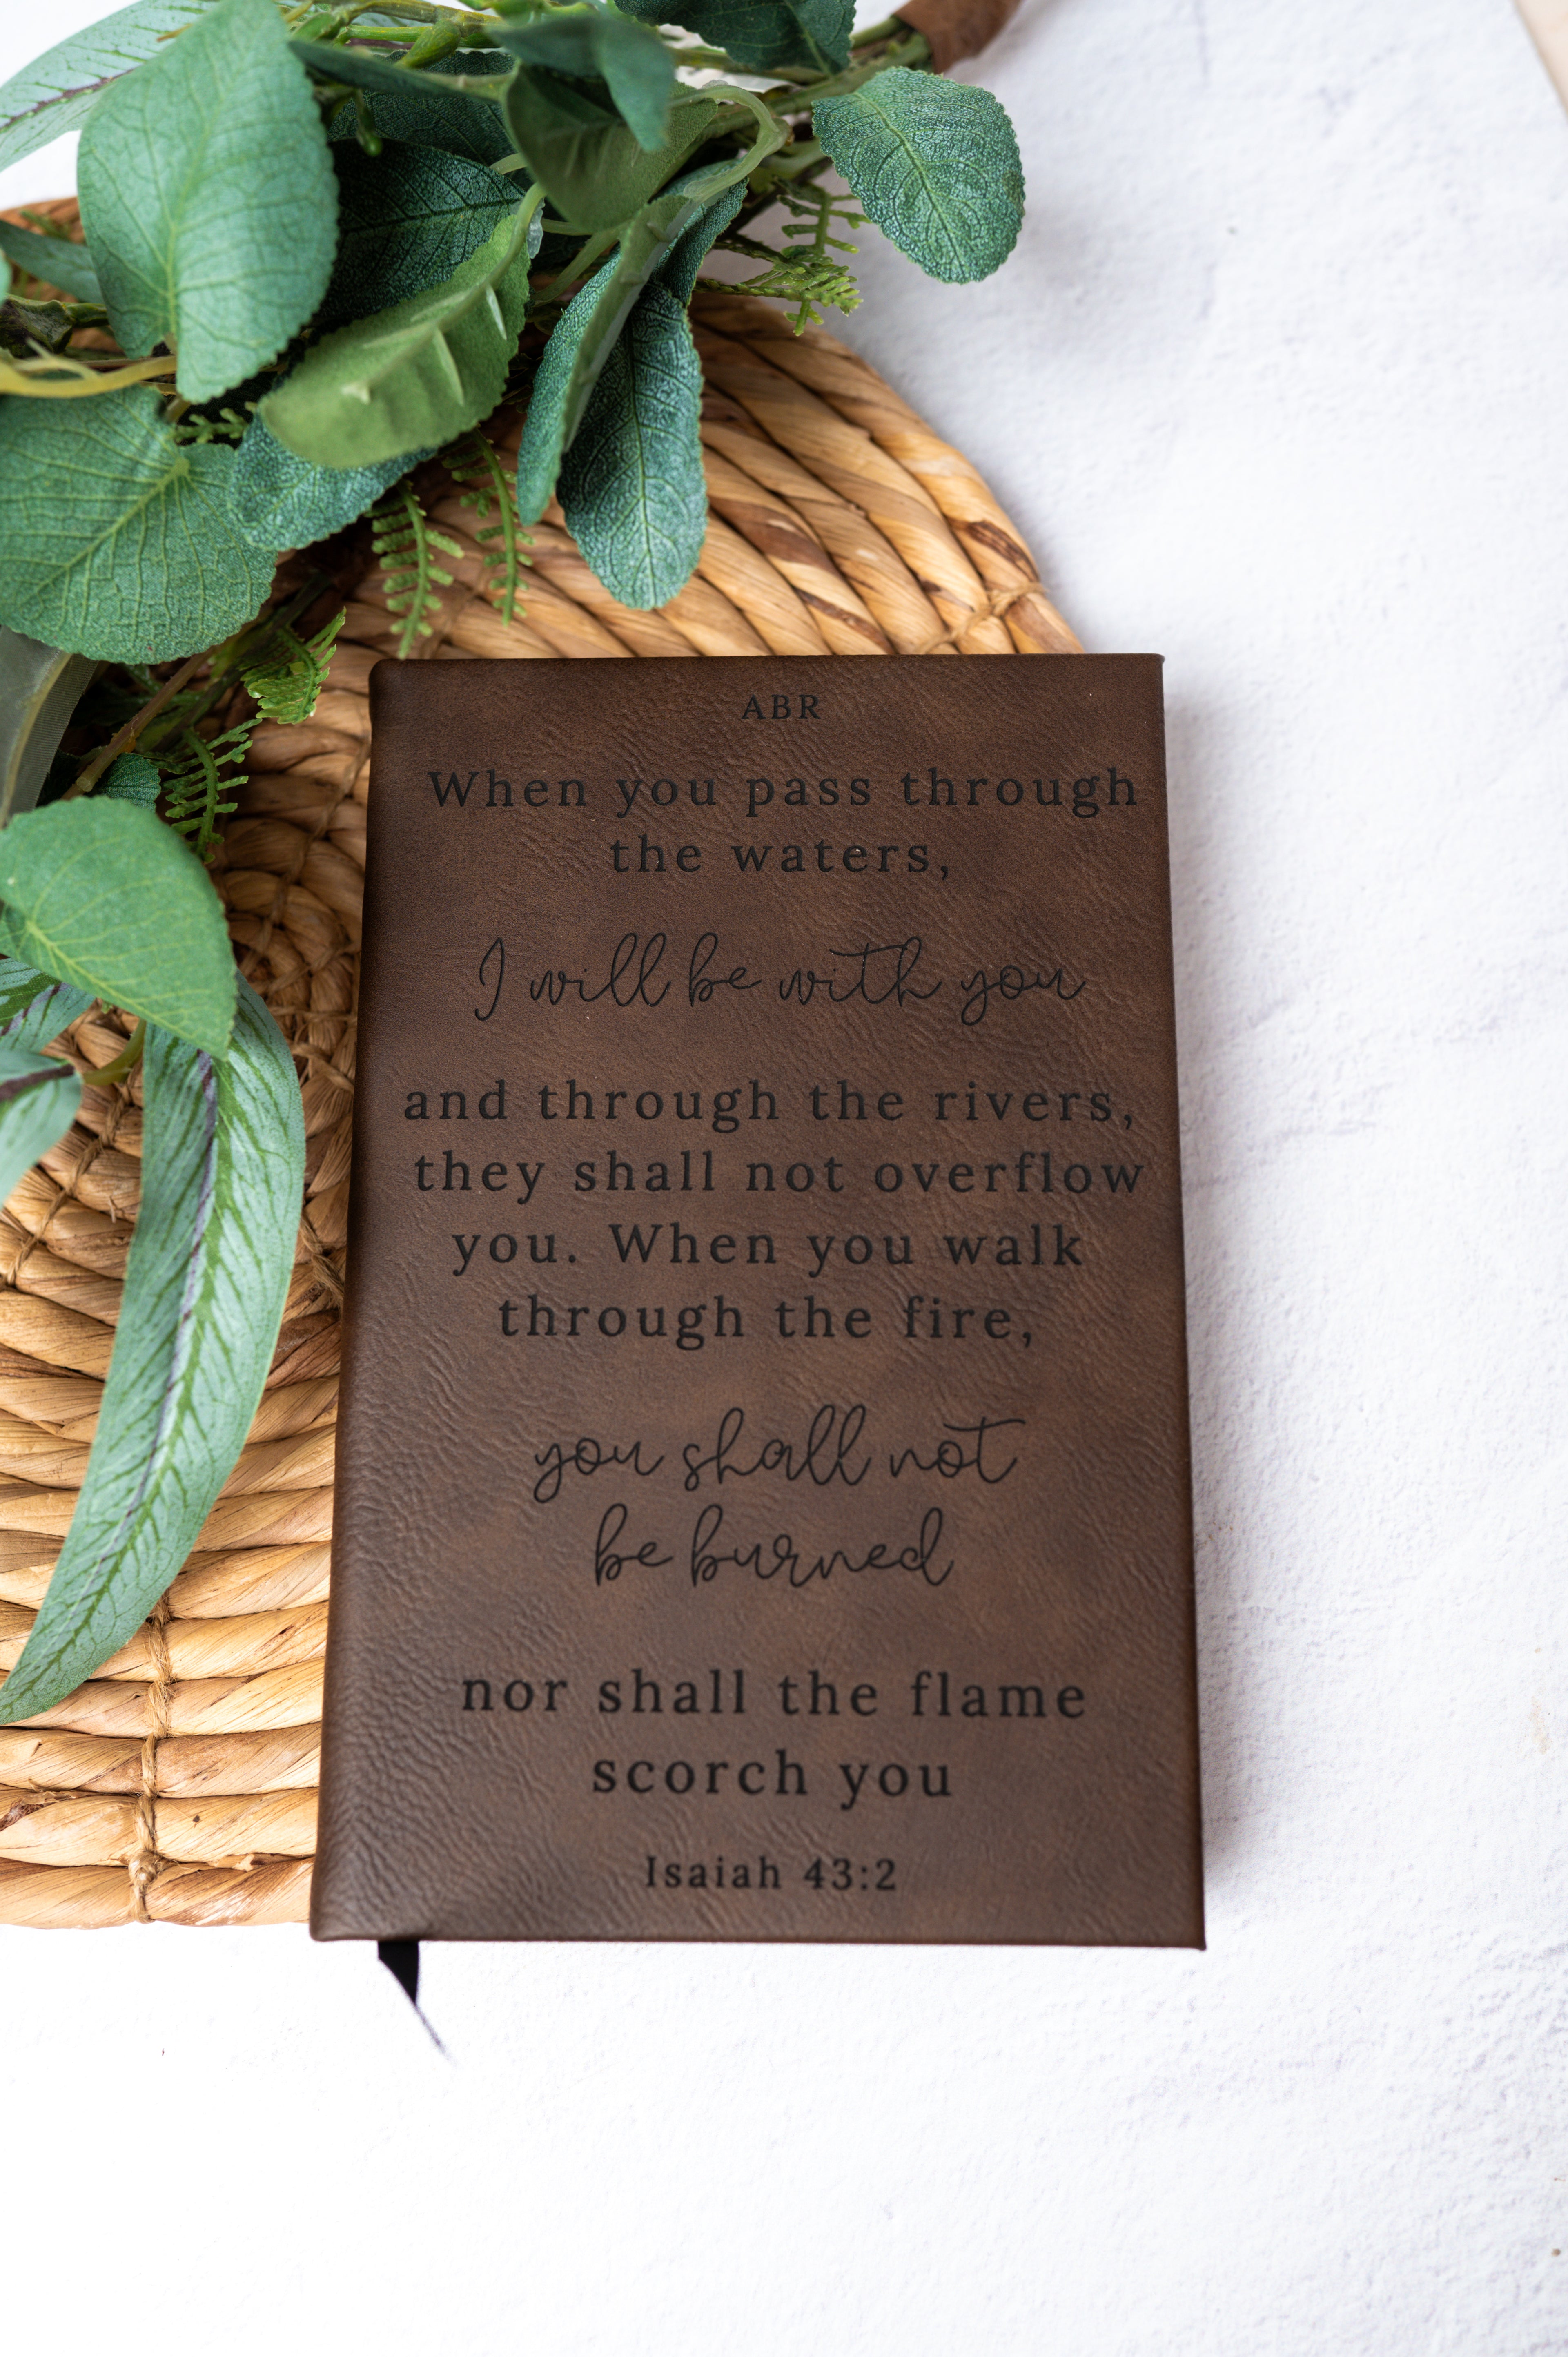 ABR
When you pass through
the waters,
I will be with you
and through the rivers,
they shall not overflow
you. When you walk
through the fire,
you shall not
be burned
nor shall the flame
scorch you
Isaiah 43:2